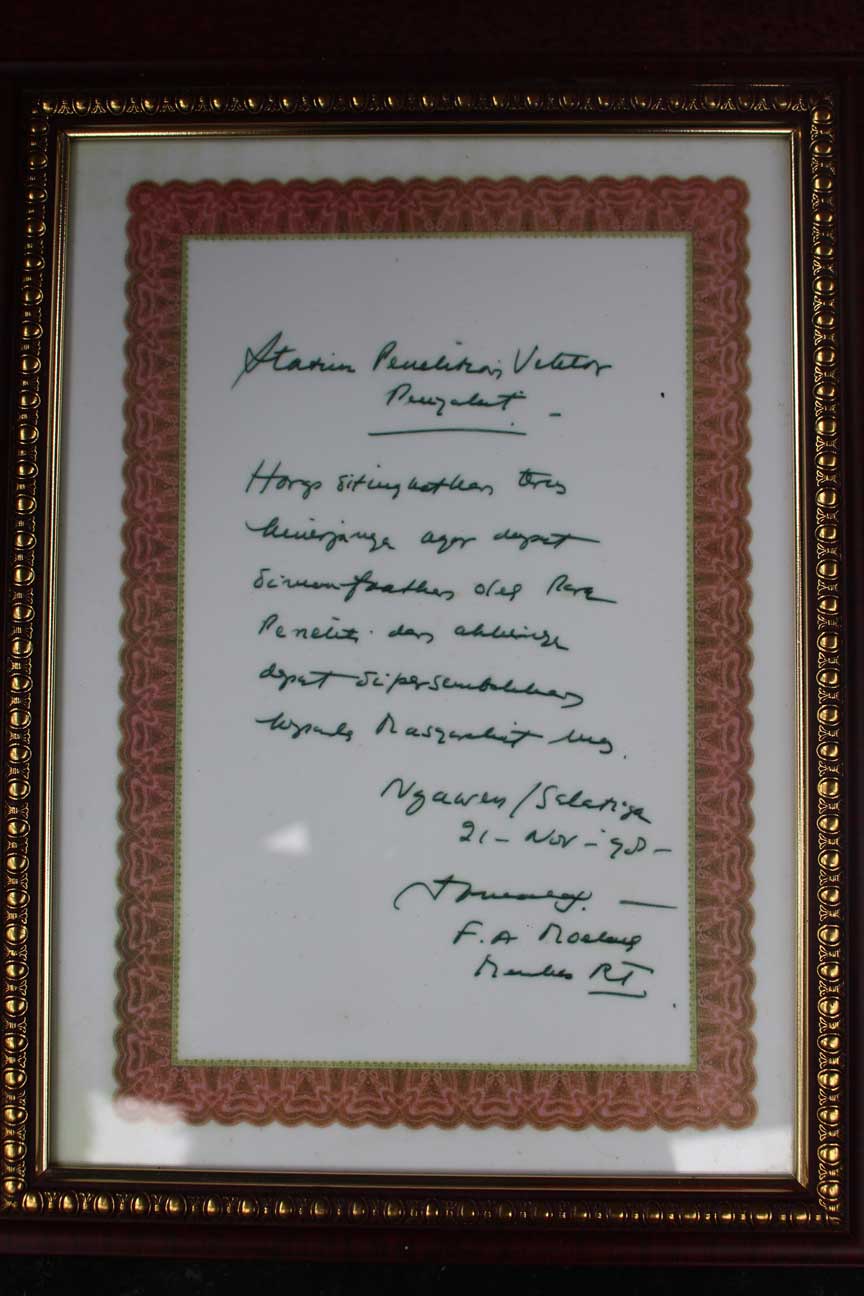 Stasiun Penelitian Vektor
Penyakit. -
Harap ditingkatkan terus
kinerjanya agar dapat
dimanfaatkan oleh Para
Peneliti dan akhirnya
dapat dipersembahkan
kepada Masyarakat
Ngawen/Salatiga
21 - Nov - 98 -
F.A Moeloek
Menkes RI